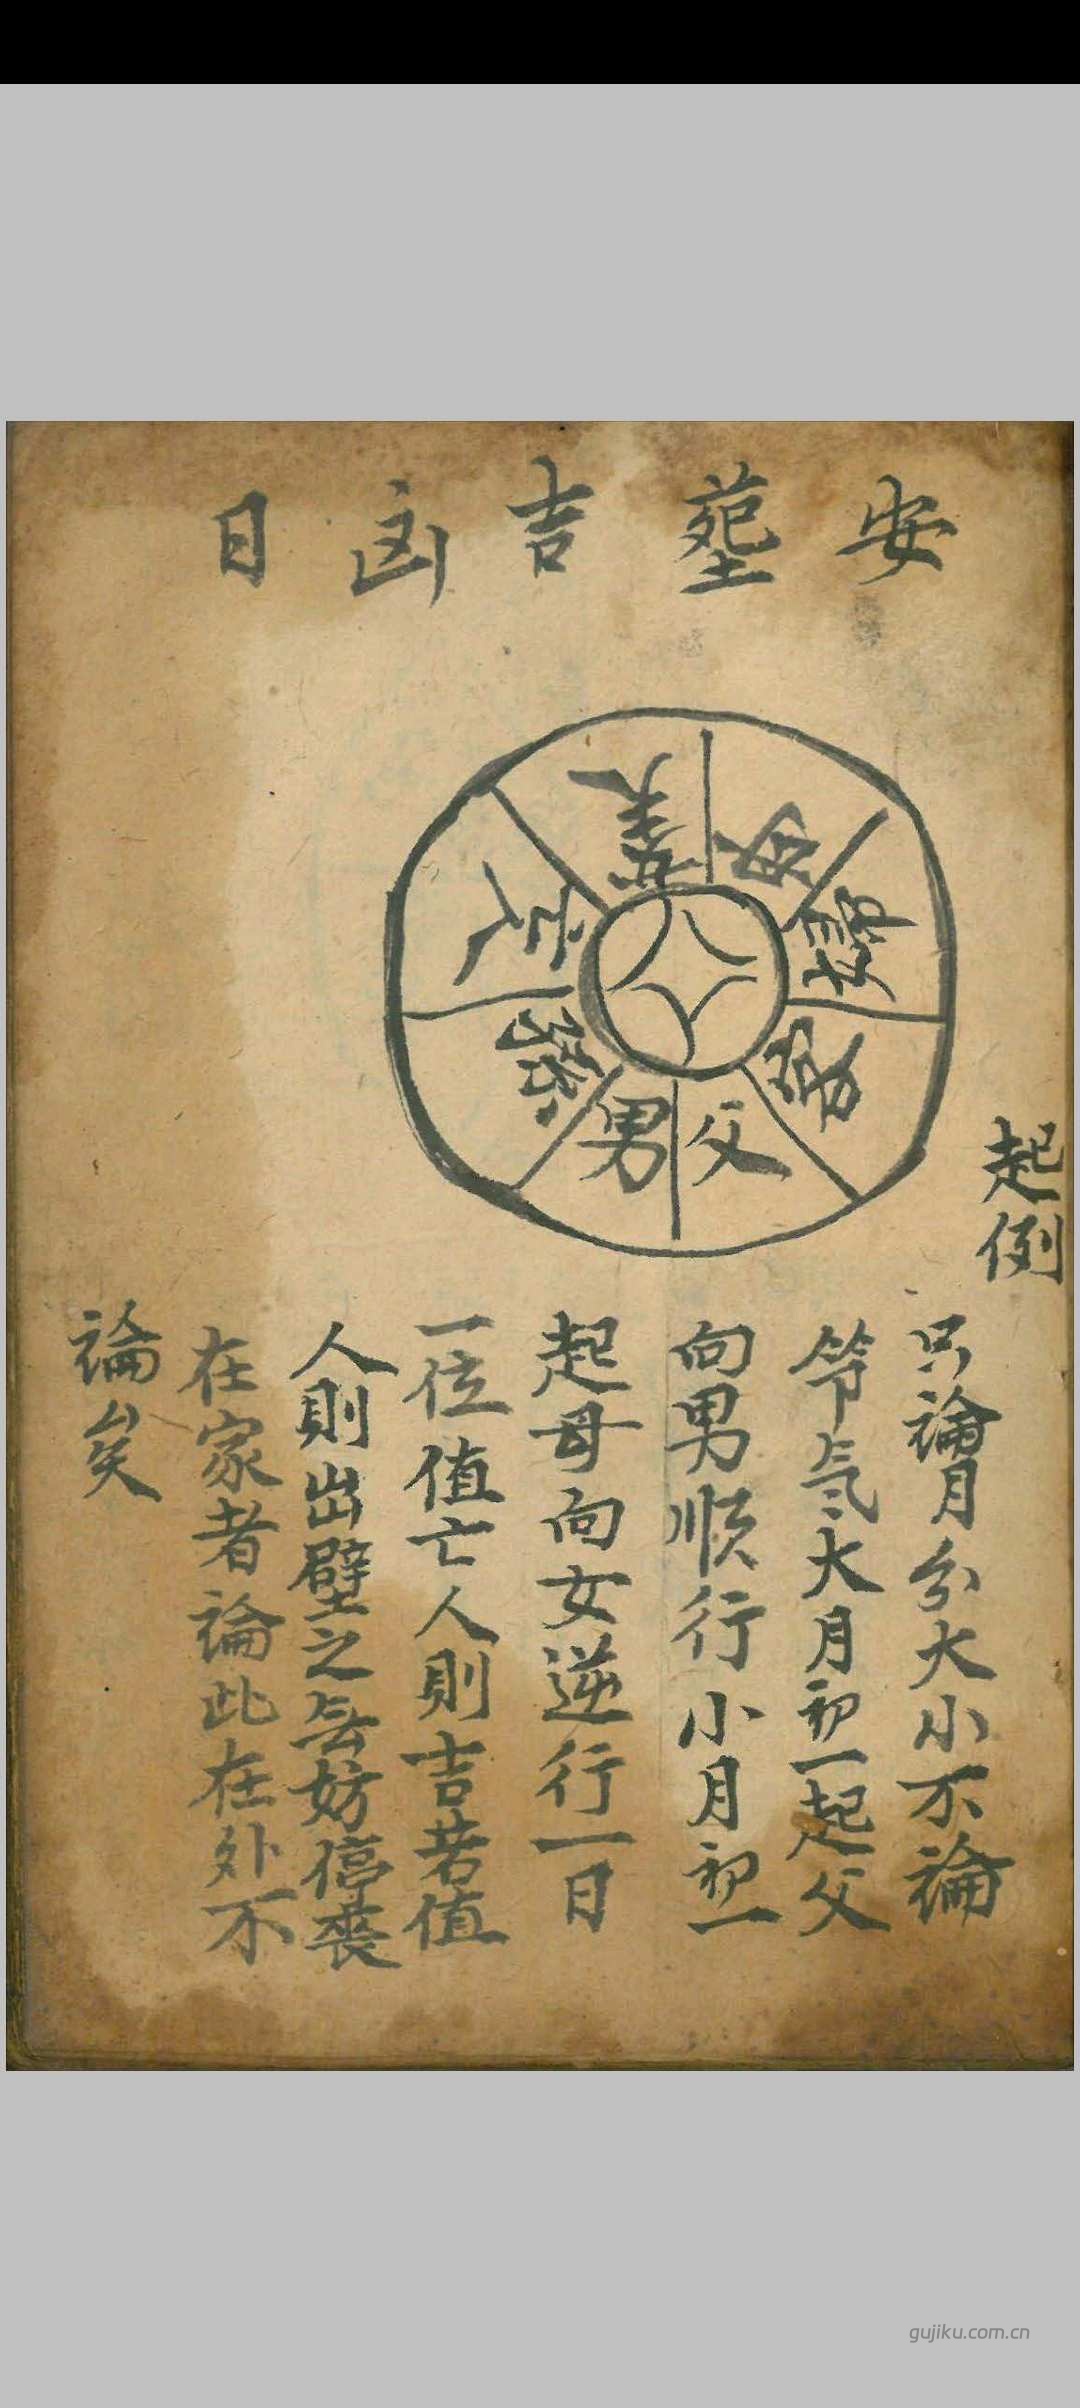 安塟吉凶日
母
婦
客
父
男
孫
亡人
起例
只論月分大小不論
節氣大月初一起父
向男順行小月初一
起母向女逆行一日
一位值亡人則吉若值
人則出壁之無妨停喪
在家者論此在外不
論矣
gujiku.com.cn